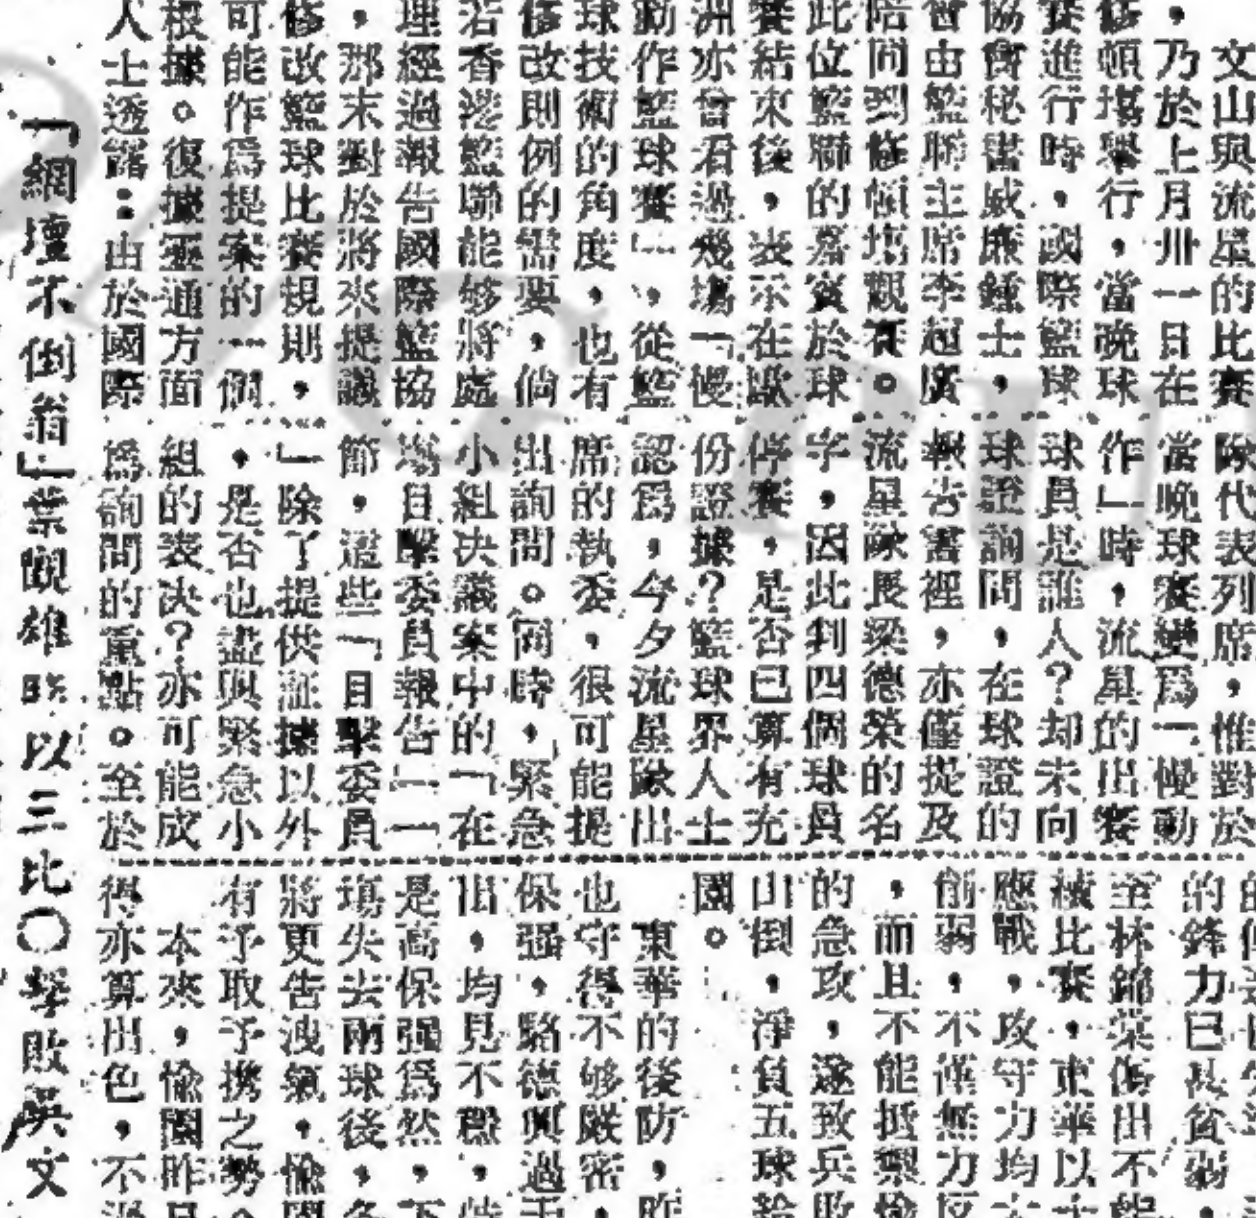 文山與流星的比賽
，乃於上月卅一日在
修頓塲舉行，當晚球
賽進行時，國際籃球
協會秘書威廉鍾士，
曾由籃聯主席李超廣
陪同到修頓塲觀賽。
此位籃聯的嘉賓於球
賽結束後，表示在歐
洲亦曾看過幾塲「慢
動作籃球賽」，從籃
球技術的角度，也有
修改則例的需要，倘
若香港籃聯能够將處
理經過報告國際籃協
，那末對於將來提議
修改籃球比賽規則，
可能作爲提案的一個
根據。復據靈通方面
人士透露：由於國際
隊代表列席，惟對於
當晚球賽變爲「慢動
作」時，流星的出賽
球員是誰人？却未向
球證詢問，在球證的
報告書裡，亦僅提及
流星隊長梁德榮的名
字，因此判四個球員
停賽，是否已算有充
份證據？籃球界人士
認爲，今夕流星隊出
席的執委，很可能提
出詢問。同時，緊急
小組決議案中的「在
塲目擊委員報告」一
節，這些「目擊委員
」除了提供証據以外
，是否也盡與緊急小
組的表決？亦可能成
爲詢問的重點。至於
的鋒力已甚貧弱，
至林錦棠傷出不能
續比賽，東華以十
應戰，攻守力均
削弱，不僅無力反
，而且不能抵禦愉
的急攻，遂致兵敗
山倒，淨負五球給
園。
東華的後防，昨
也守得不够嚴密，
保强，駱德興過于
出，均見不穩，
是高保强爲然，下
塲失去兩球後，各
將更告洩氣，愉園
有予取予携之勢
本來，愉園昨日
得亦算出色，不過
「網壇不倒翁」葉觀雄昨以三比〇擊敗吳文